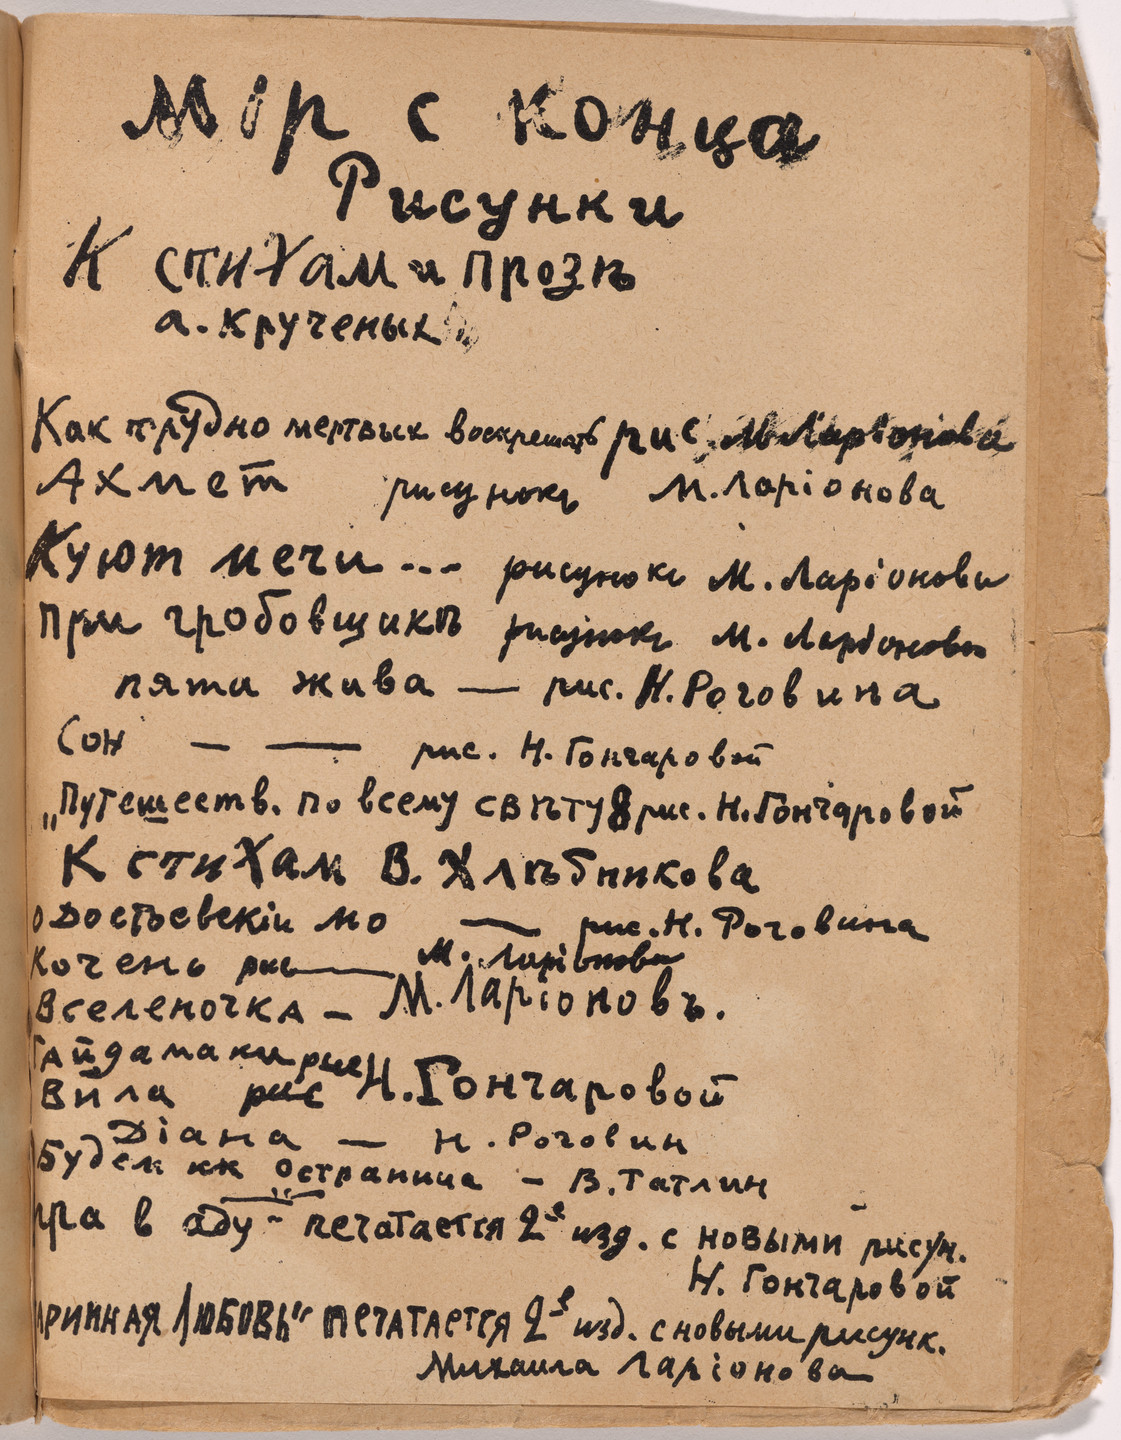 Мір с конца
Рисунки
К стихам и прозѣ
А. Крученых
Как трудно мертвых воскрешать рис. М. Ларіонова
Ахмет рисунокъ М. Ларіонова
Куют мечи --- рисунокъ М. Ларіонова
При гробовщикѣ рисунокъ М. Ларіонова
пята жива — рис. Н. Роговина
Сон — — рис. Н. Гончаровой
„Путешеств. по всему свѣту 8 рис. Н. Гончаровой
К стихам В. Хлѣбникова
о Достоевскій мо — рис. Н. Роговина
Кочень рис — М. Ларіонова
Вселеночка — М. Ларіоновъ.
Гайдамаки рис Н. Гончаровой
Вила рис
Діана — Н. Роговин
Остраница — В. Татлин
гра в аду" - печатается 2е изд. с новыми рисун.
Н. Гончаровой
аринная Любовь" печатается 2е изд. с новыми рисунк.
Михаила Ларіонова